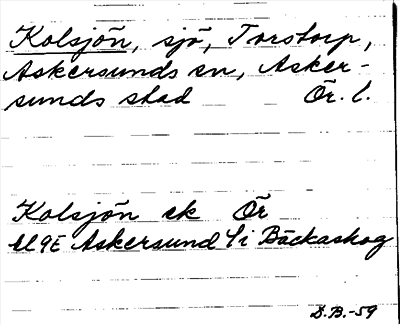 Kolsjön, sjö, Torstorp,
Askersunds sn, Asker-
sunds stad Ör. l.
Kolsjön ek Ör
Askersund Bäckaskog
D.B.-59